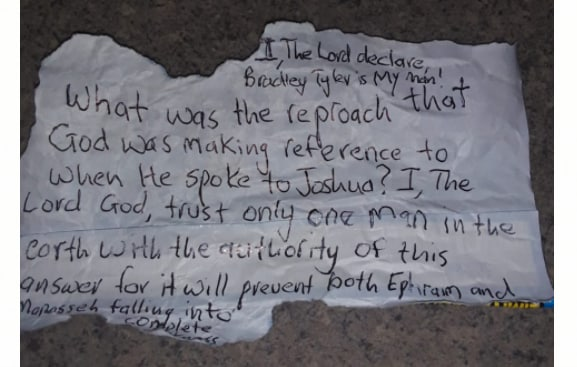 I, The Lord declare,
Bradley Tyler is My man!
What was the reproach that
God was making reference to
when He spoke to Joshua? I, The
Lord God, trust only one man in the
earth with the authority of this
answer for it will prevent both Ephraim and
Manasseh falling into
complete